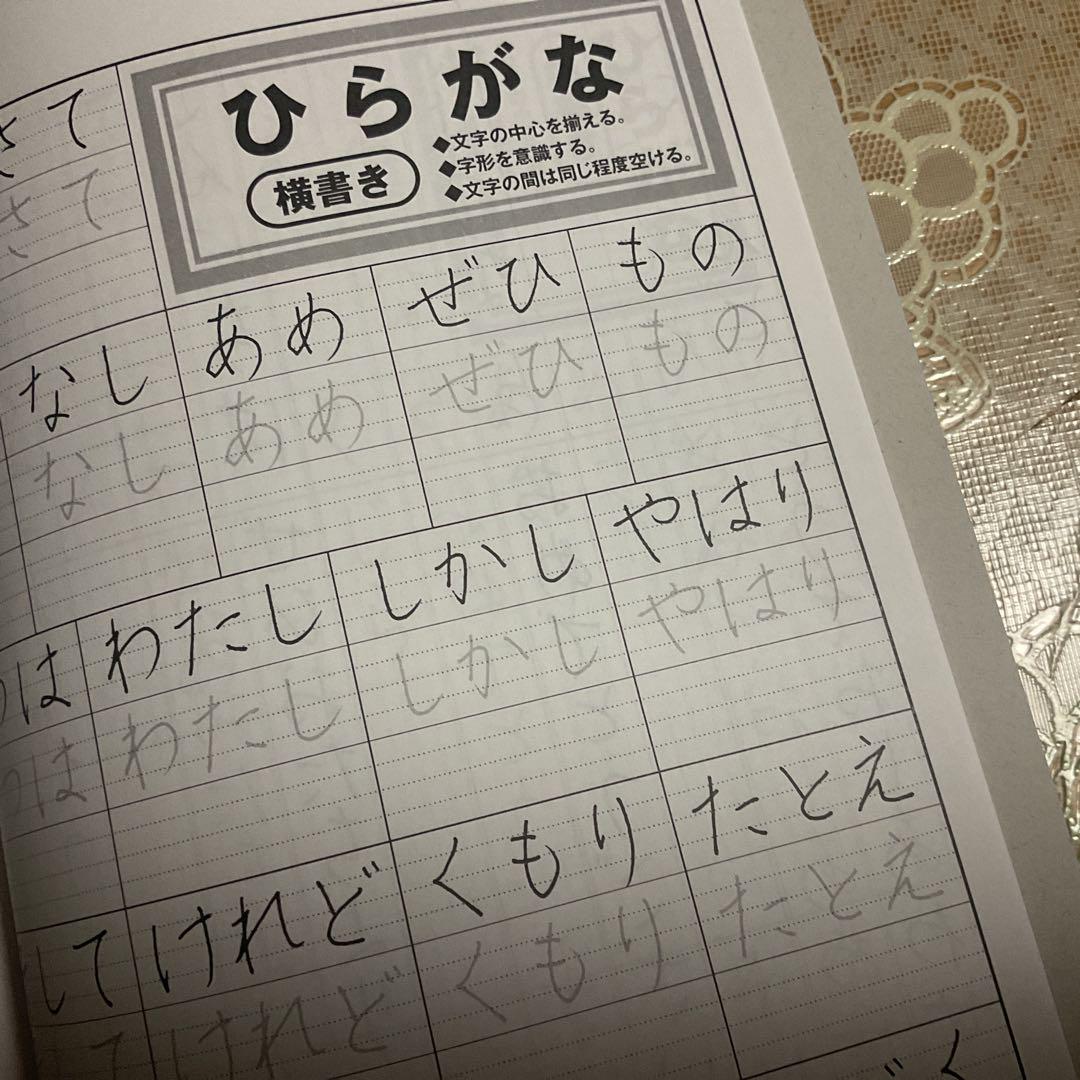 ひらがな
横書き
◆文字の中心を揃える。
◆字形を意識する。
◆文字の間は同じ程度空ける。
さて
さて
なし あめ ぜひ もの
なし あめ ぜひ もの
は わたし しかし やはり
は わたし しかし やはり
して けれど くもり たとえ
て けれど くもり たとえ
く